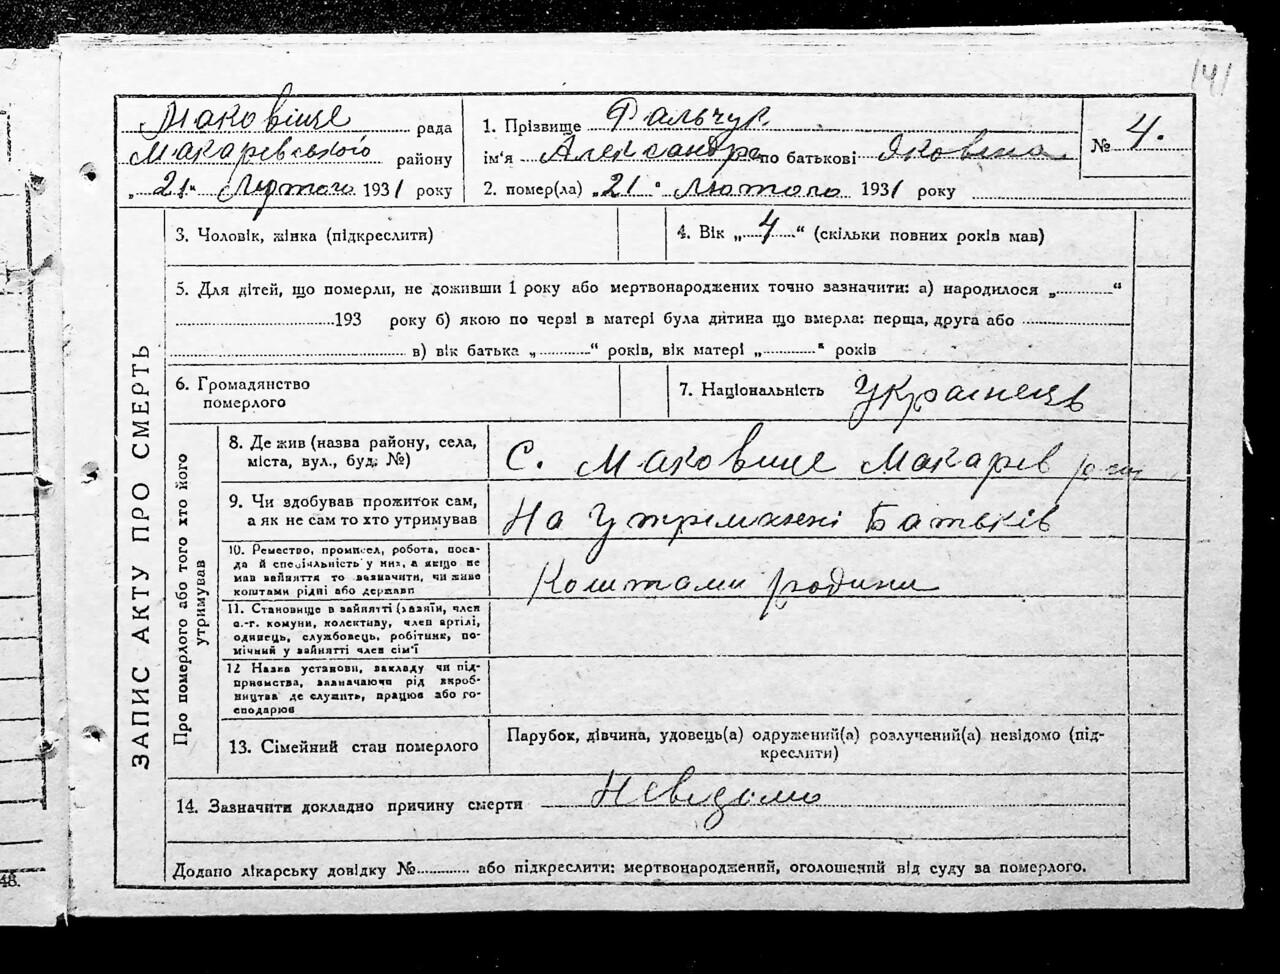 141
Маковище рада
Макарівського району
„21“ Лютого 1931 року
1. Прізвище Фальчук
ім'я Александра по батькові Яковина
2. помер(ла) „21“ лютого 1931 року
№ 4.
ЗАПИС АКТУ ПРО СМЕРТЬ
3. Чоловік, жінка (підкреслити)
4. Вік „4“ (скільки повних років мав)
5. Для дітей, що померли, не доживши 1 року або мертвонароджених точно зазначити: а) народилося „............“
193 року б) якою по черзі в матері була дитина що вмерла: перша, друга або
в) вік батька „............“ років, вік матері „............“ років
6. Громадянство
померлого
7. Національність Українець
Про померлого або того хто його
утримував
8. Де жив (назва району, села,
міста, вул., буд. №)
С. Маковище Макарів
9. Чи здобував прожиток сам,
а як не сам то хто утримував
На Утриманні Батьків
10. Ремество, промисел, робота, поса-
да й спеціяльність у них, а якщо не
мав зайняття то зазначити, чи живе
коштами рідні або держави
Коштами родини
11. Становище в зайнятті (хазяїн, член
с.-г. комуни, колективу, член артілі,
одинець, службовець, робітник, по-
мічний у зайнятті член сім'ї
12 Назва установи, закладу чи під-
приємства, зазначаючи рід вироб-
ництва де служить, працює або го-
сподарює
13. Сімейний стан померлого
Парубок, дівчина, удовець(а) одружений(а) розлучений(а) невідомо (під-
креслити)
14. Зазначити докладно причину смерти Невідомо
Додано лікарську довідку №............ або підкреслити: мертвонароджений, оголошений від суду за померлого.
48.